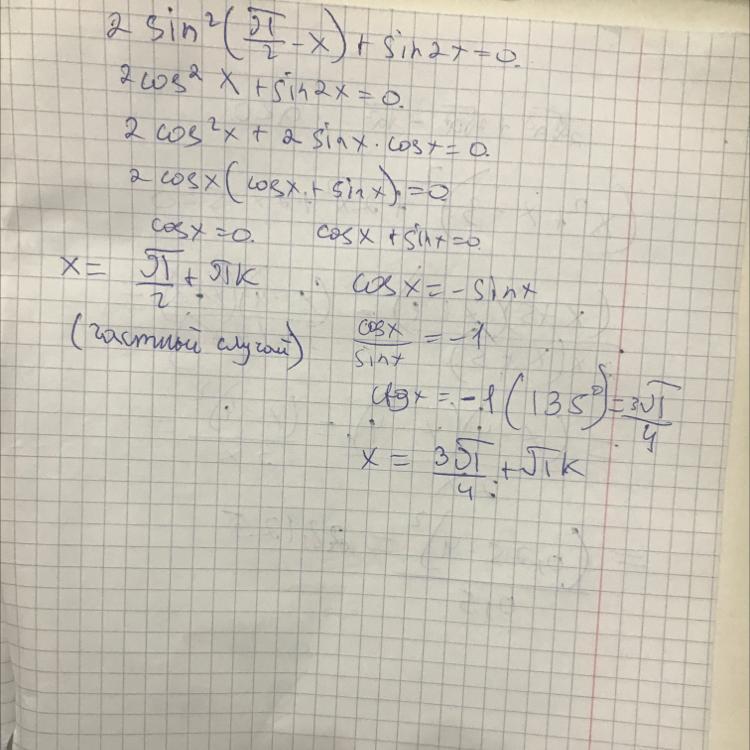 2 sin²(π/2 - x) + sin2x = 0.
2cos² x + sin2x = 0.
2 cos²x + 2 sinx · cosx = 0.
2 cosx (cosx + sinx) = 0
cosx = 0. cosx + sinx = 0
x = π/2 + πk cosx = -sinx
(частный случай) cosx/sinx = -1
ctgx = -1 (135°) = 3π/4
x = 3π/4 + πk